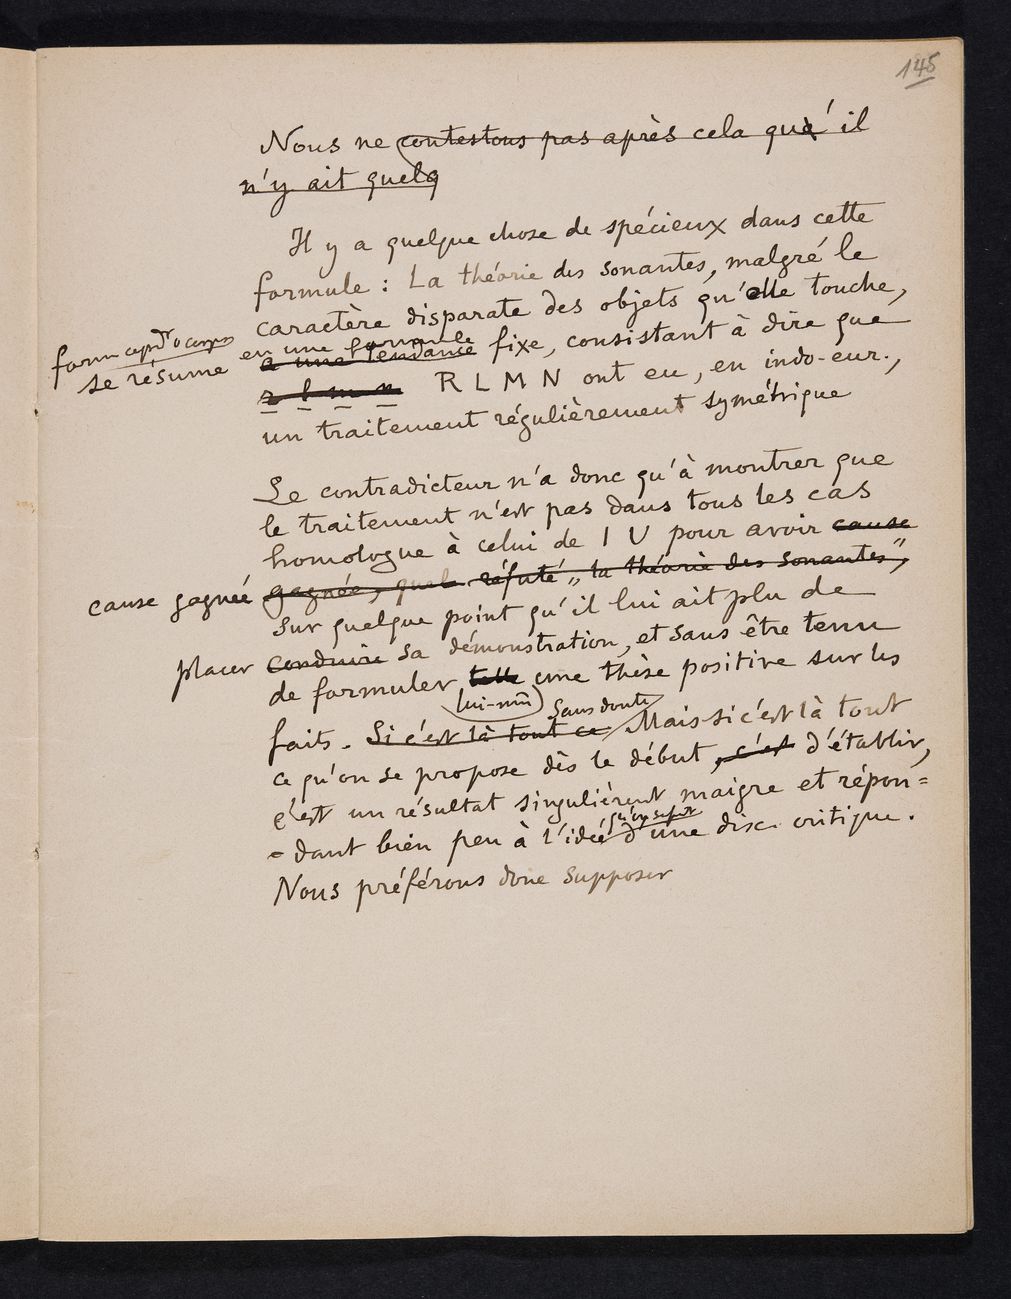 145
Nous ne contestons pas après cela que' il
n'y ait quelq
Il y a quelque chose de spécieux dans cette
formule : La théorie des sonantes, malgré le
caractère disparate des objets qu'elle touche,
se résume en une formule
a une tendance fixe, consistant à dire que
r l m n R L M N ont eu, en indo-eur.,
un traitement régulièrement symétrique
Le contradicteur n'a donc qu'à montrer que
le traitement n'est pas dans tous les cas
homologue à celui de I U pour avoir cause
cause gagnée gagnée, quel réfuté „la théorie des sonantes",
sur quelque point qu'il lui ait plu de
placer conduire sa démonstration, et sans être tenu
de formuler telle une thèse positive sur les
lui-mm Sans doute
faits. Si c'est là tout ce Mais si c'est là tout
ce qu'on se propose dès le début, c'est d'établir,
c'est un résultat singulièrent maigre et répon=
=dant bien peu à l'idée d'une disc. critique.
Nous préférons donc supposer